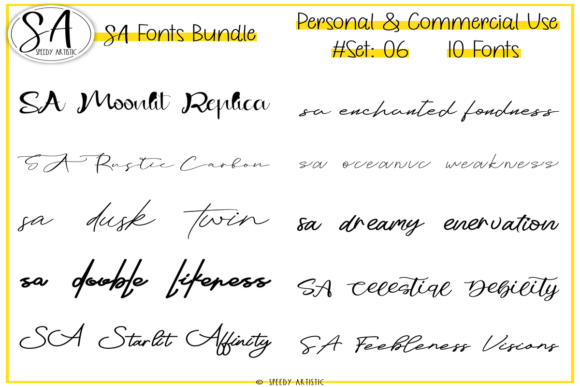 SA
SPEEDY ARTISTIC
SA Fonts Bundle
Personal & Commercial Use
#Set: 06 10 Fonts
SA Moonlit Replica
SA Rustic Carbon
sa dusk twin
sa double likeness
SA Starlit Affinity
sa enchanted fondness
sa oceanic weakness
sa dreamy enervation
SA Celestial Debility
SA Feebleness Visions
© SPEEDY ARTISTIC